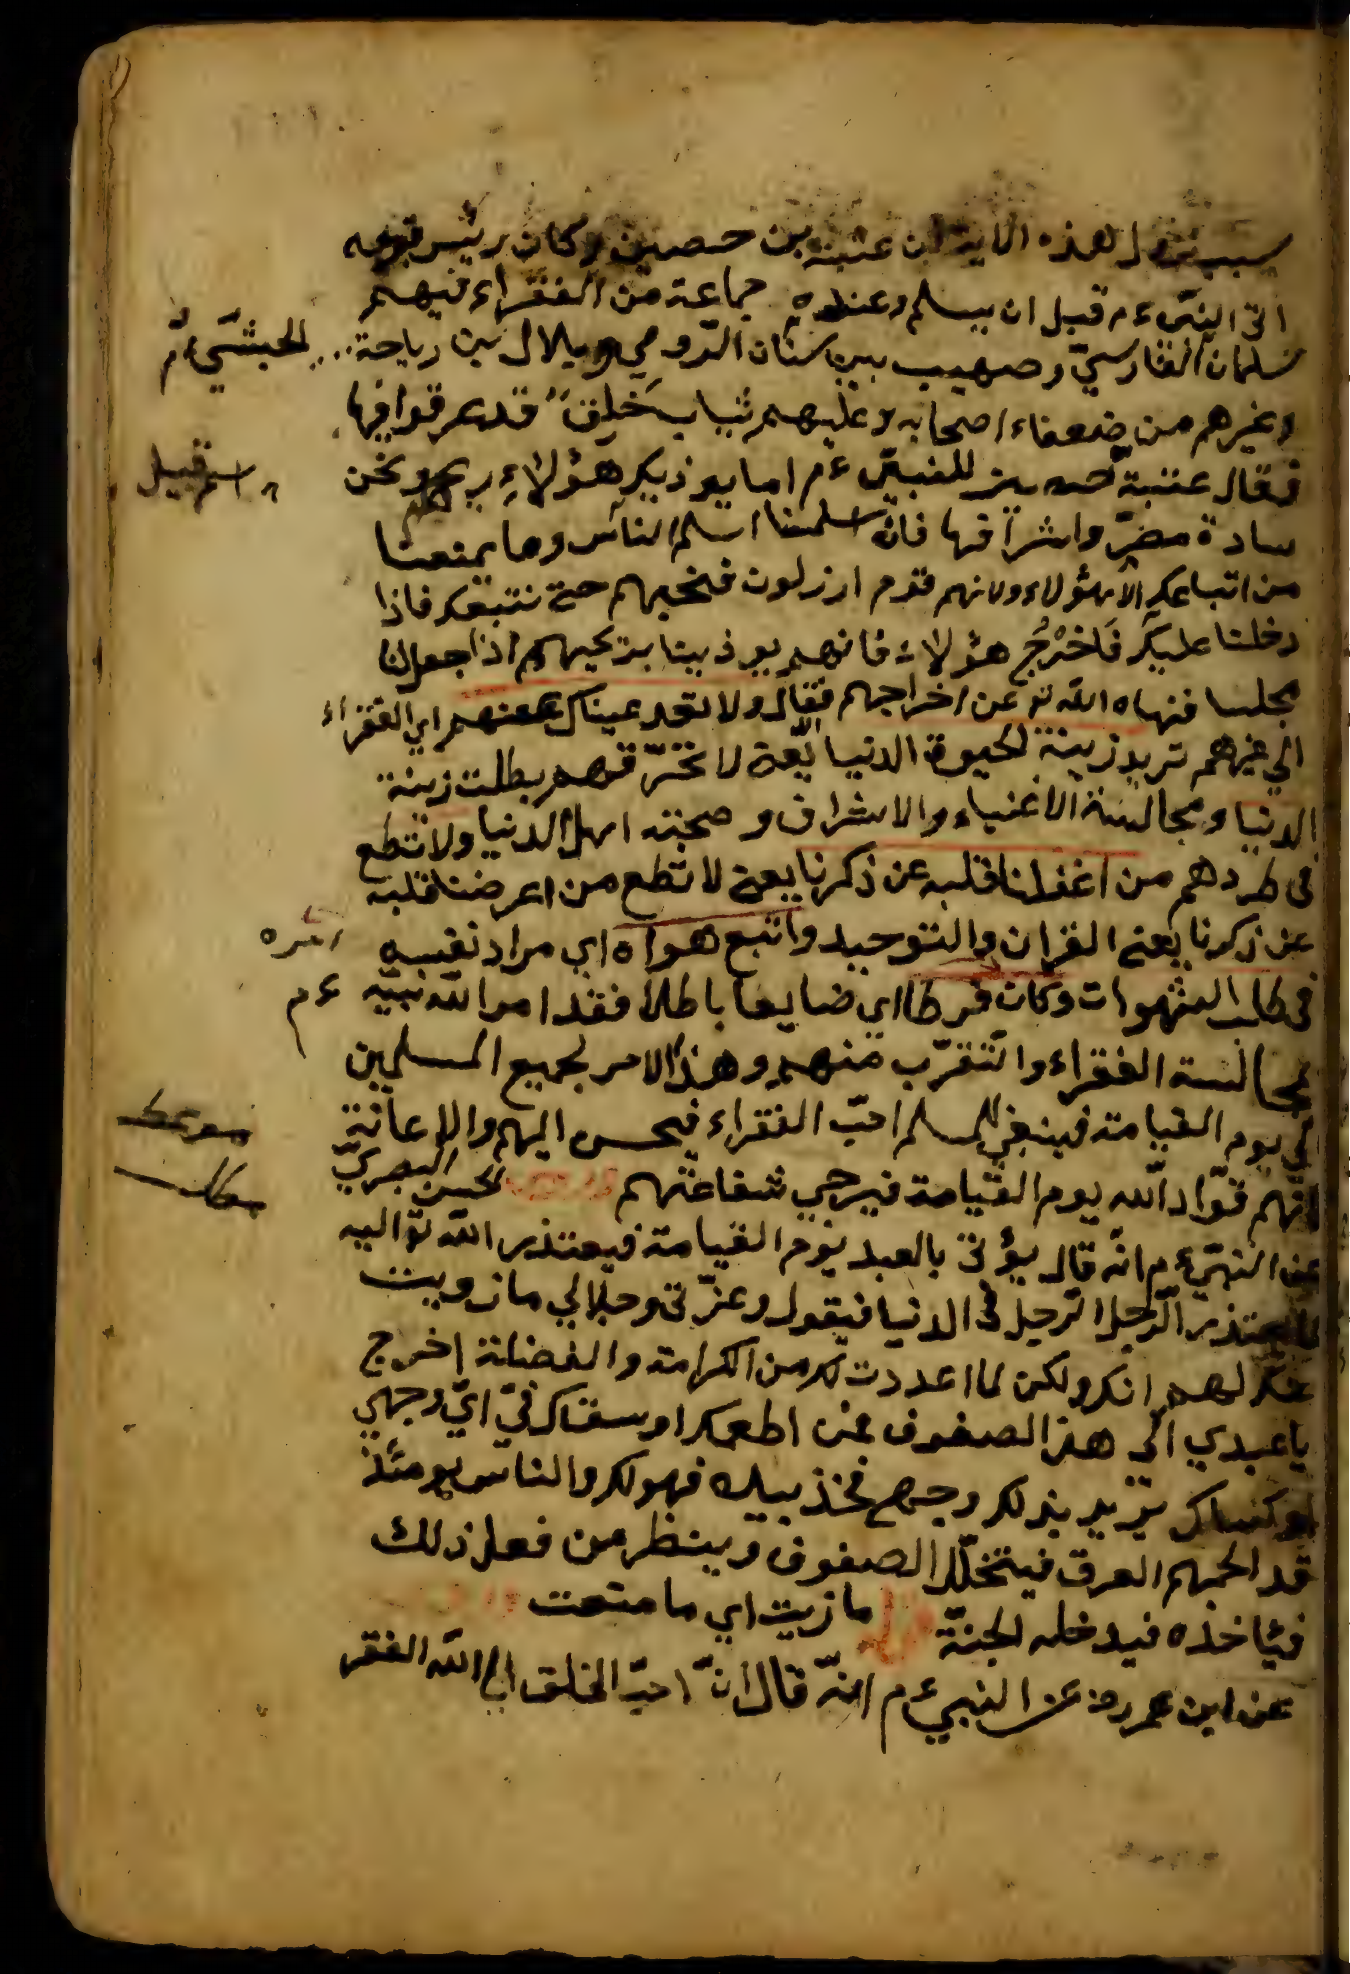 سبب نزول هذه الاية ان عتبة بن حصين وكان رئيس قومه
اتى النبي ءم قبل ان يسلم وعنده جماعة من الفقراء فيهم
سلمان الفارسيّ وصهيب بن سنان الرّومي وبلال بن رباحة الحبشيّ
وغيرهم من ضعفاء اصحابه وعليهم ثياب خلق قد عرقوا فيها
فقال عتبة للنبيّ ءم اما يوذيك هؤلاء ريحهم ونحن
سادة مضرّ واشرافها فان اسلمنا اسلم الناس وما يمنعنا
من اتباعك الا هؤلاء ولانهم قوم ارزلون فنحيهم حتى نتبعك فاذا
دخلنا عليك فَاَخْرُجْ هؤلاء فانهم يوذيننا بريحهم اذا جعل لنا
مجلسا فنهاه الله تع عن اخراجهم فقال ولا تعد عيناك عنهم اي الفقراء
الي غيرهم تريد زينة الحيوة الدنيا يعنى لا تحقرهم بطلب زينة
الدنيا ومجالسة الاغنياء والاشراف وصحبته اهل الدنيا ولا تطع
في طردهم من اغفلنا قلبه عن ذكرنا يعنى لا تطع من اعرضنا قلبه
عن ذكرنا يعنى القران والتوحيد واتبع هواه اي مراد نفسه
في طلب الشهوات وكان امره فرطا اي ضايعا باطلا فقد امر الله نبيّه ءم
بمجالسة الفقراء والتقرّب منهم وهذا الامر لجميع المسلمين
الي يوم القيامة فينبغي للمسلم احبّ الفقراء فيحسن اليهم والاعانة
انّهم قوّاد الله يوم القيامة فيرجي شفاعتهم الحسن البصريّ
عن النبيّ ءم انه قال يؤتى بالعبد يوم القيامة فيعتذر الله تع اليه
كما يعتذر الرّجل الرّجل في الدنيا فيقول وعزّتى وجلالي ما زويت
لكن لما اعددت لك من الكرامة والفضيلة اخرج
يا عبدي الى هذا الصفوف فمن اطعمك او سقاك فيّ اي وجهي
او كساك يريد بذلك وجهي فخذ بيده فهو لك والناس يومئذ
قد الجمهم العرق فيتخلّل الصفوف وينظر من فعل ذلك
فياخذه فيدخله الجنّة ما زويت اي ما منعت
عن ابن عمر رض عن النبي ءم انّه قال انّ احبّ الخلق الي الله الفقر